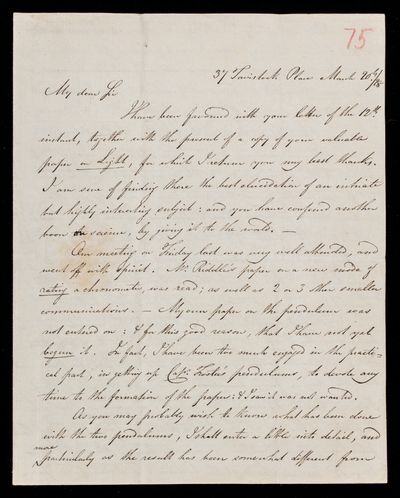 75
37 Tavistock Place March 20th/28
My dear Sir
I have been favored with your letter of the 12th
instant, together with the present of a copy of your valuable
paper on Light, for which I return you my best thanks.
I am sure of finding there the best elucidation of an intricate
but highly interesting subject: and you have conferred another
boon on science, by giving it to the world. —
Our meeting on Friday last was very well attended, and
went off with spirit. Mr Riddle's paper on a new mode of
rating a chronometer, was read; as well as 2 or 3 other smaller
communications. — My own paper on the pendulum was
not entered on: & for this good reason, that I have not yet
begun it. In fact, I have been too much engaged in the practi=
cal part, in getting up Capt. Foster's pendulums, to devote any
time to the formation of the paper: & I saw it was not wanted.
As you may probably wish to know what has been done
with the two pendulums, I shall enter a little into detail, and
more
particularly as the result has been somewhat different from